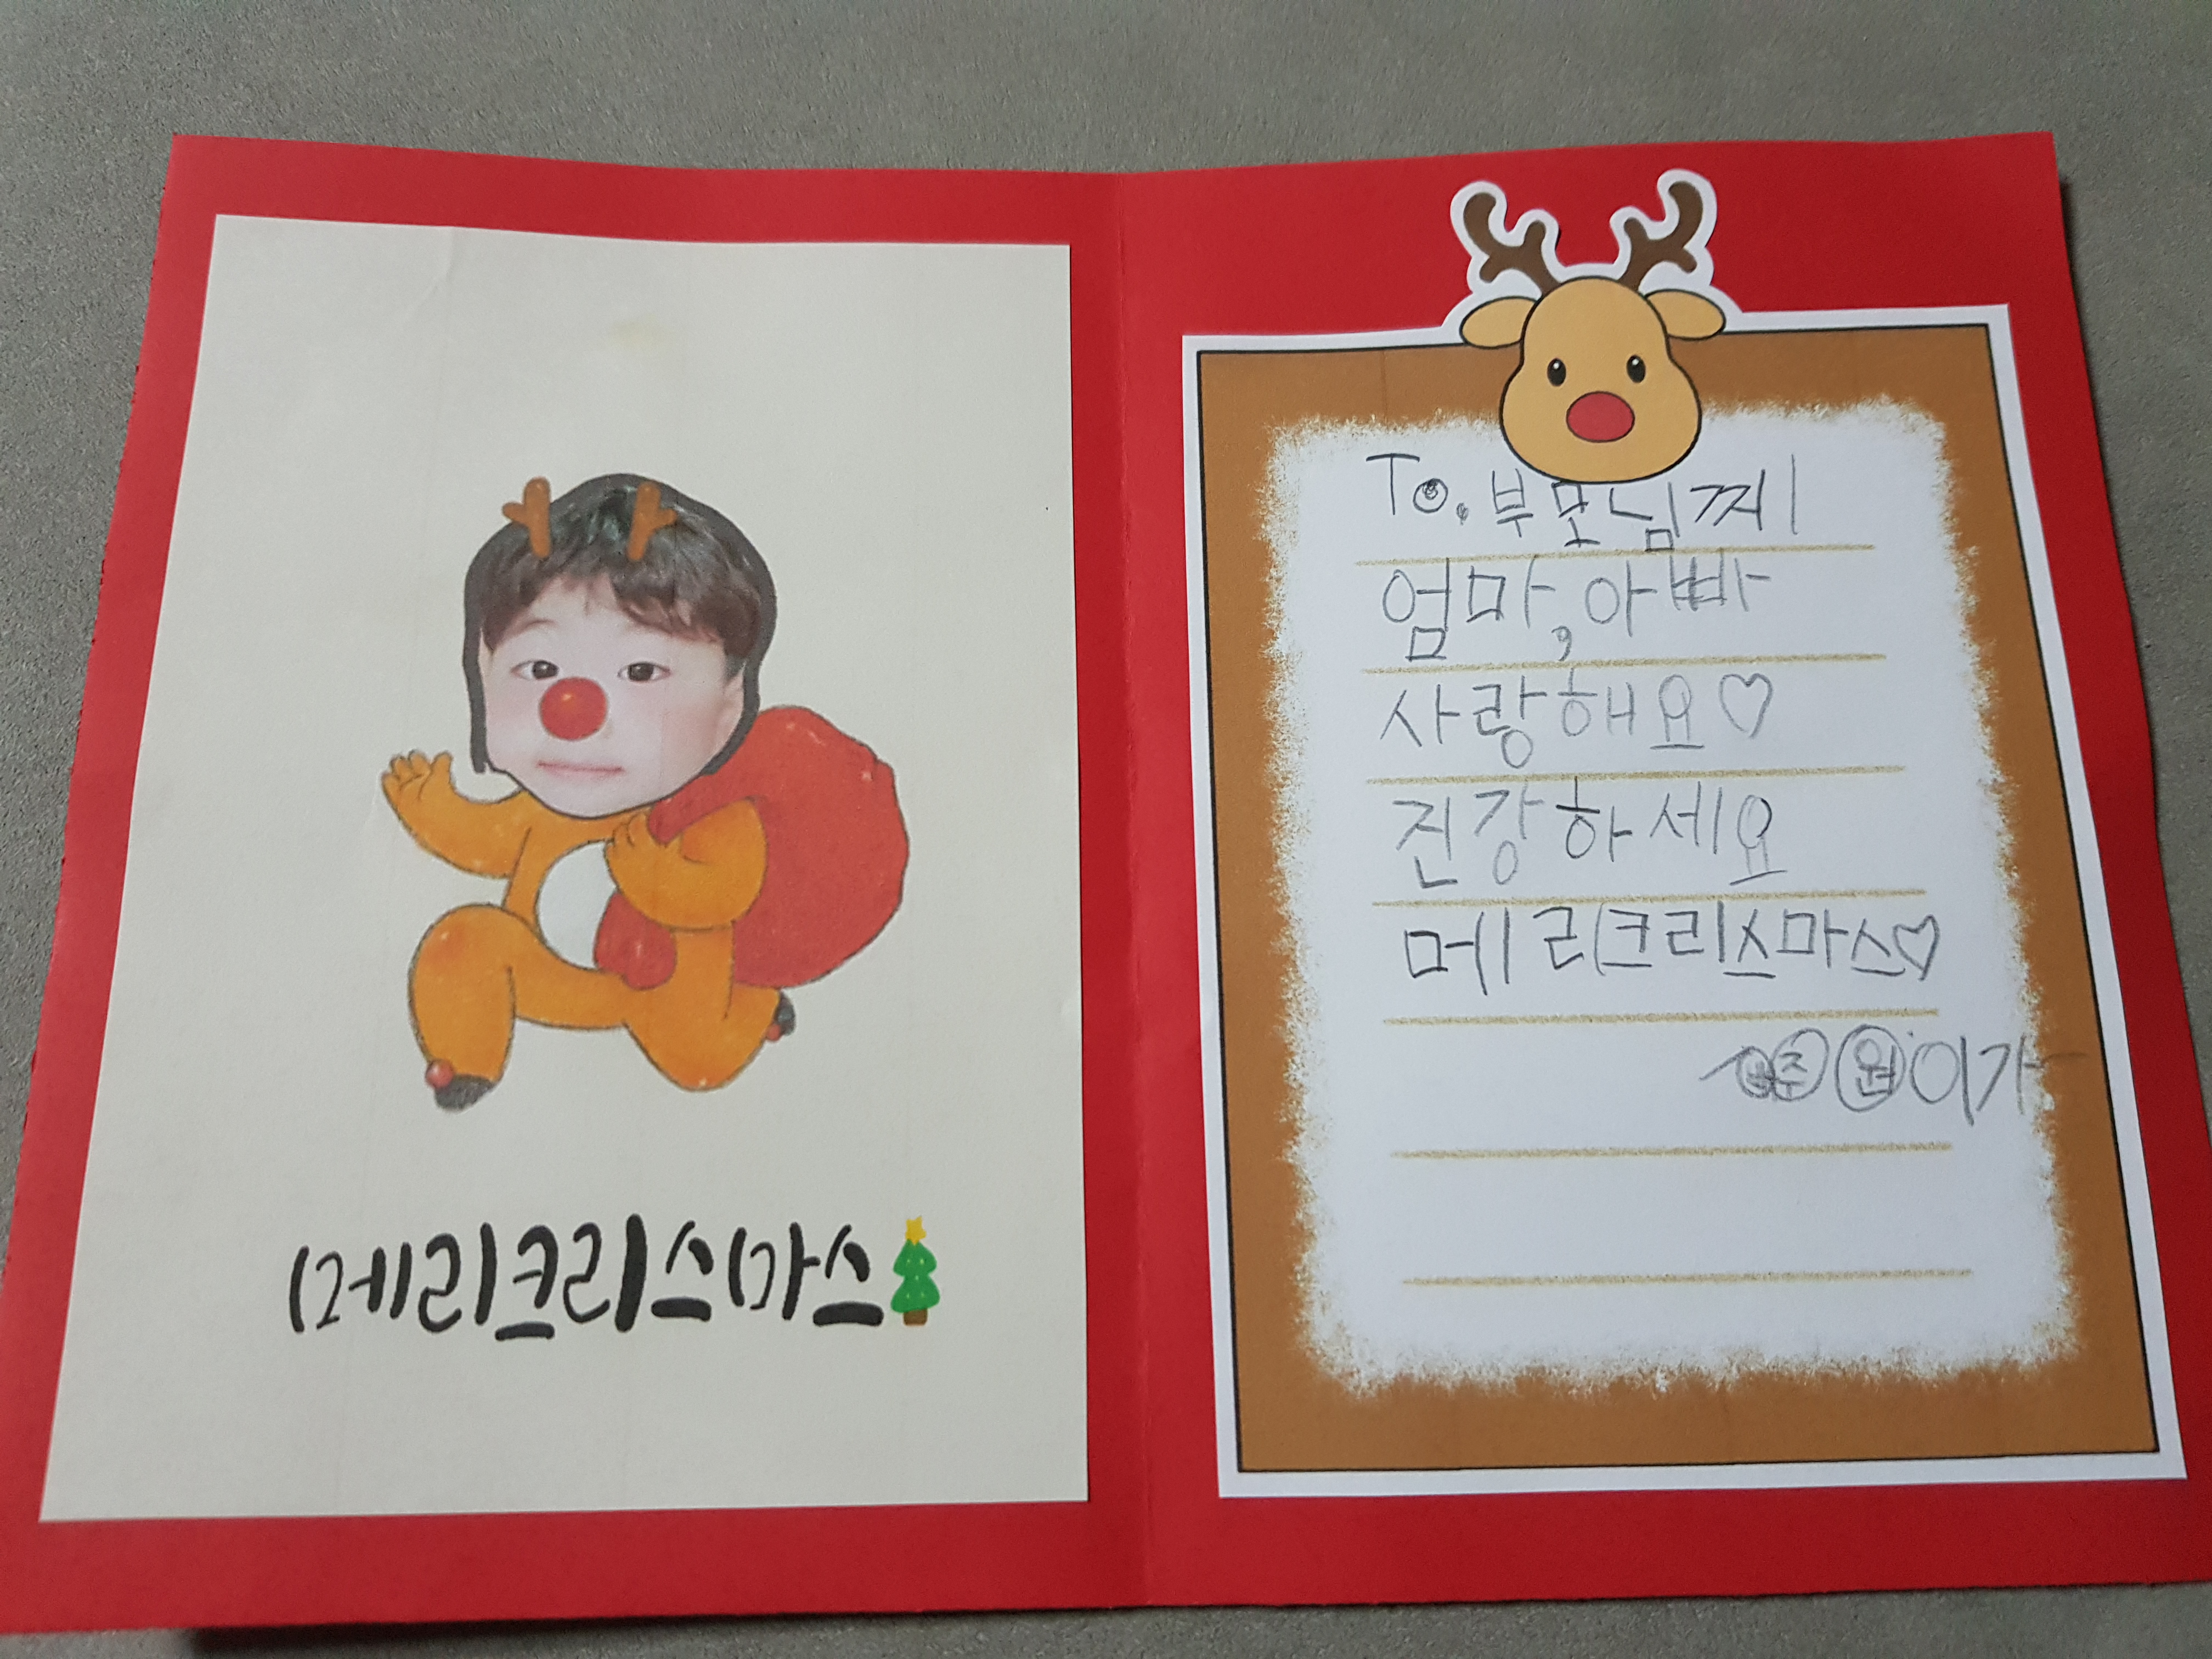 메리크리스마스
To. 부모님께
엄마, 아빠
사랑해요♡
진강하세요
메리크리스마스♡
준원이가